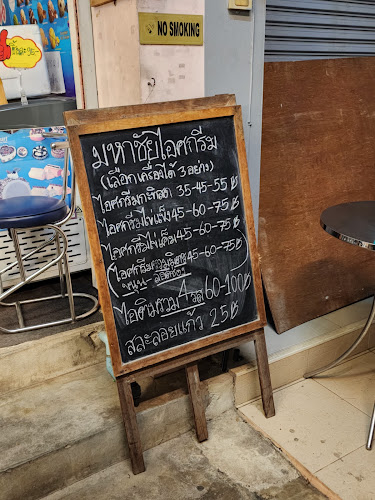 NO SMOKING
มหาชัยไอศกรีม
(เลือกเครื่องได้ 3 อย่าง)
ไอศกรีมกะทิสด 35-45-55฿
ไอศกรีมไข่แข็ง 45-60-75฿
ไอศกรีมไข่เค็ม 45-60-75฿
(ไอศกรีม 45-60-75฿
ไอติมรวม 4 60-100฿
สละลอยแก้ว 25฿